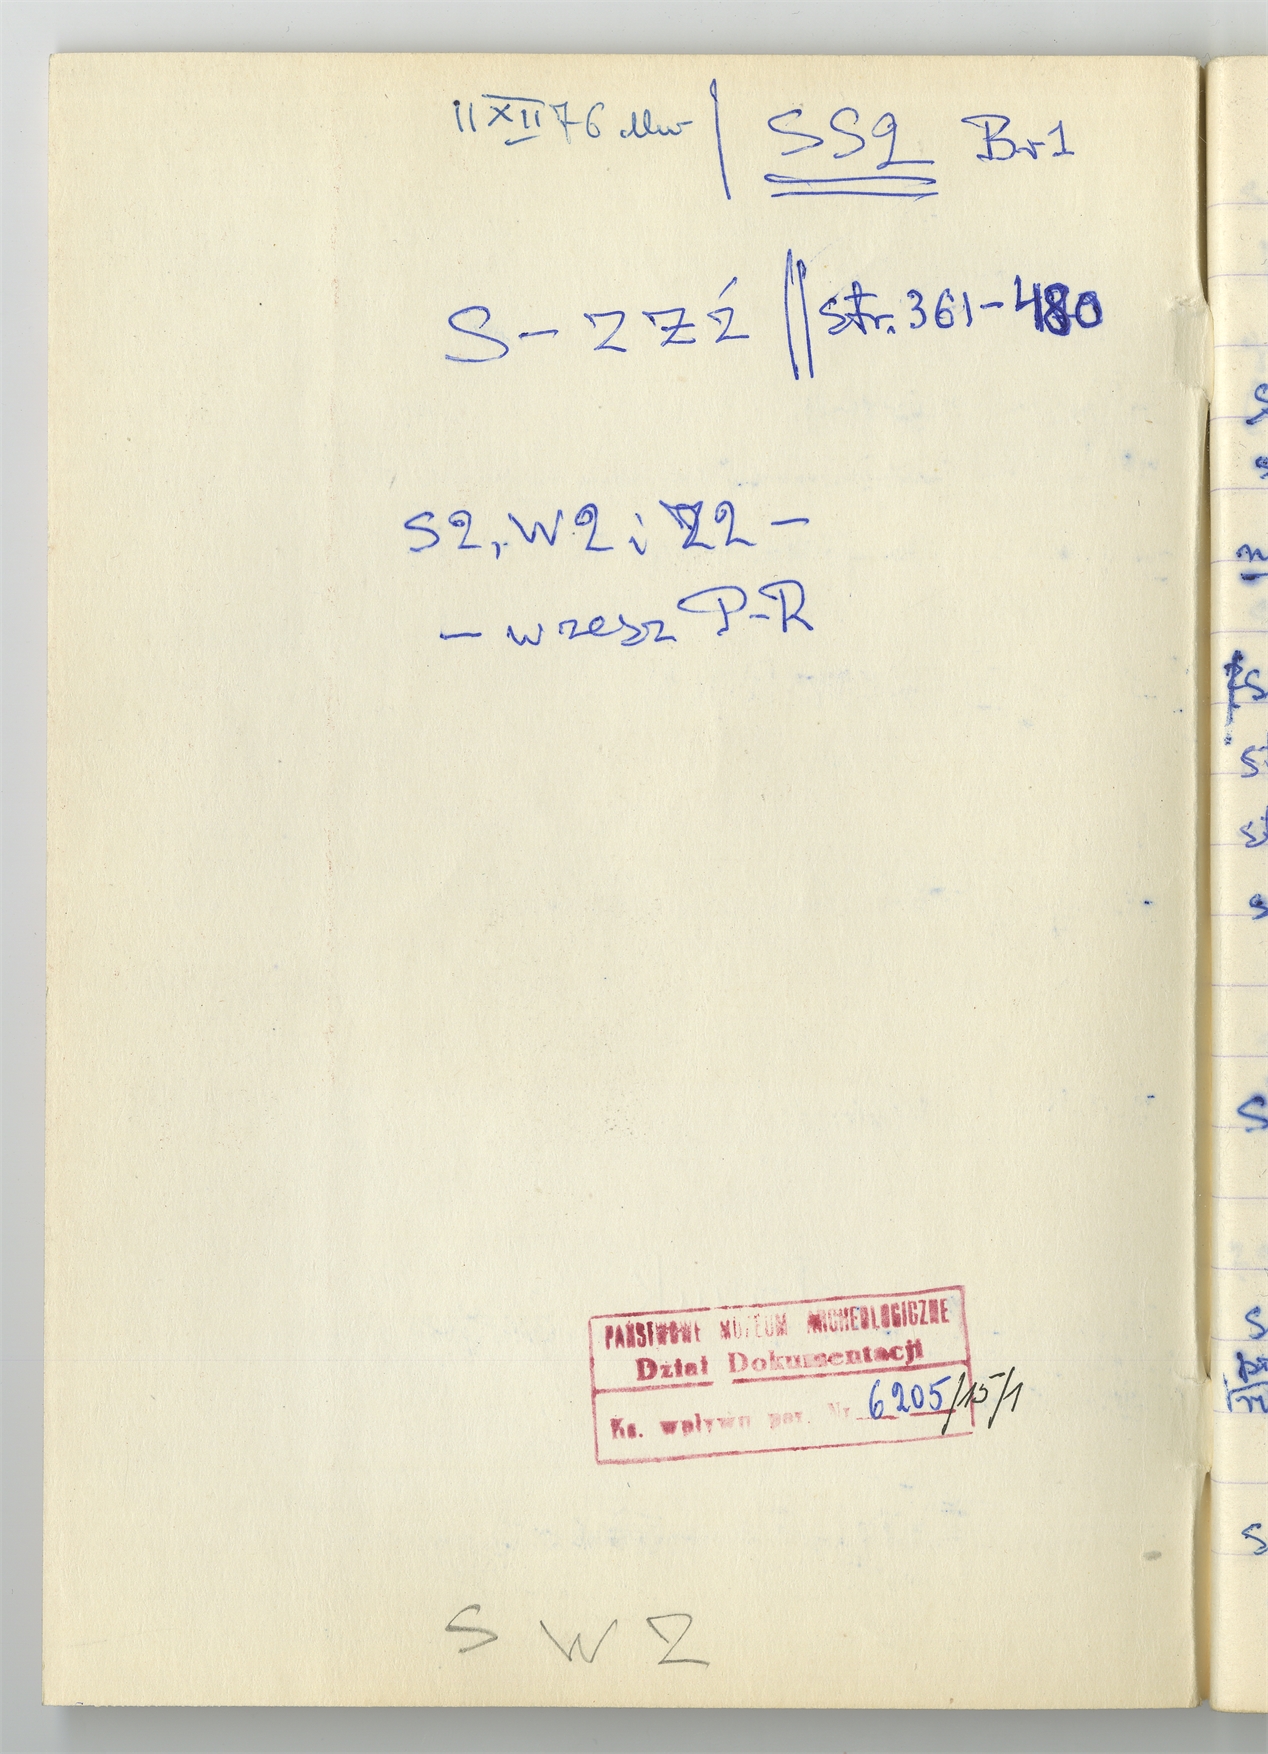 11 XII 76 Mw | SS2 Br1
S – Z Ż Ź || str. 361–480
S2, W2 i Z2 –
– wrzesz P–R
PAŃSTWOWE MUZEUM ARCHEOLOGICZNE
Dział Dokumentacji
Ks. wpływu poz. Nr 6205/15/1
S W Z